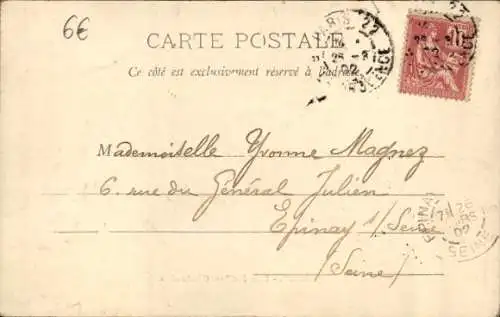 6€
CARTE POSTALE
Ce côté est exclusivement réservé à l'adresse
PARIS 22
25
02
10
Mademoiselle Yvonne Magnez
6. rue du Général Julien
Epinay s/ Seine
(Seine)
EPINAY
26
02
SEINE